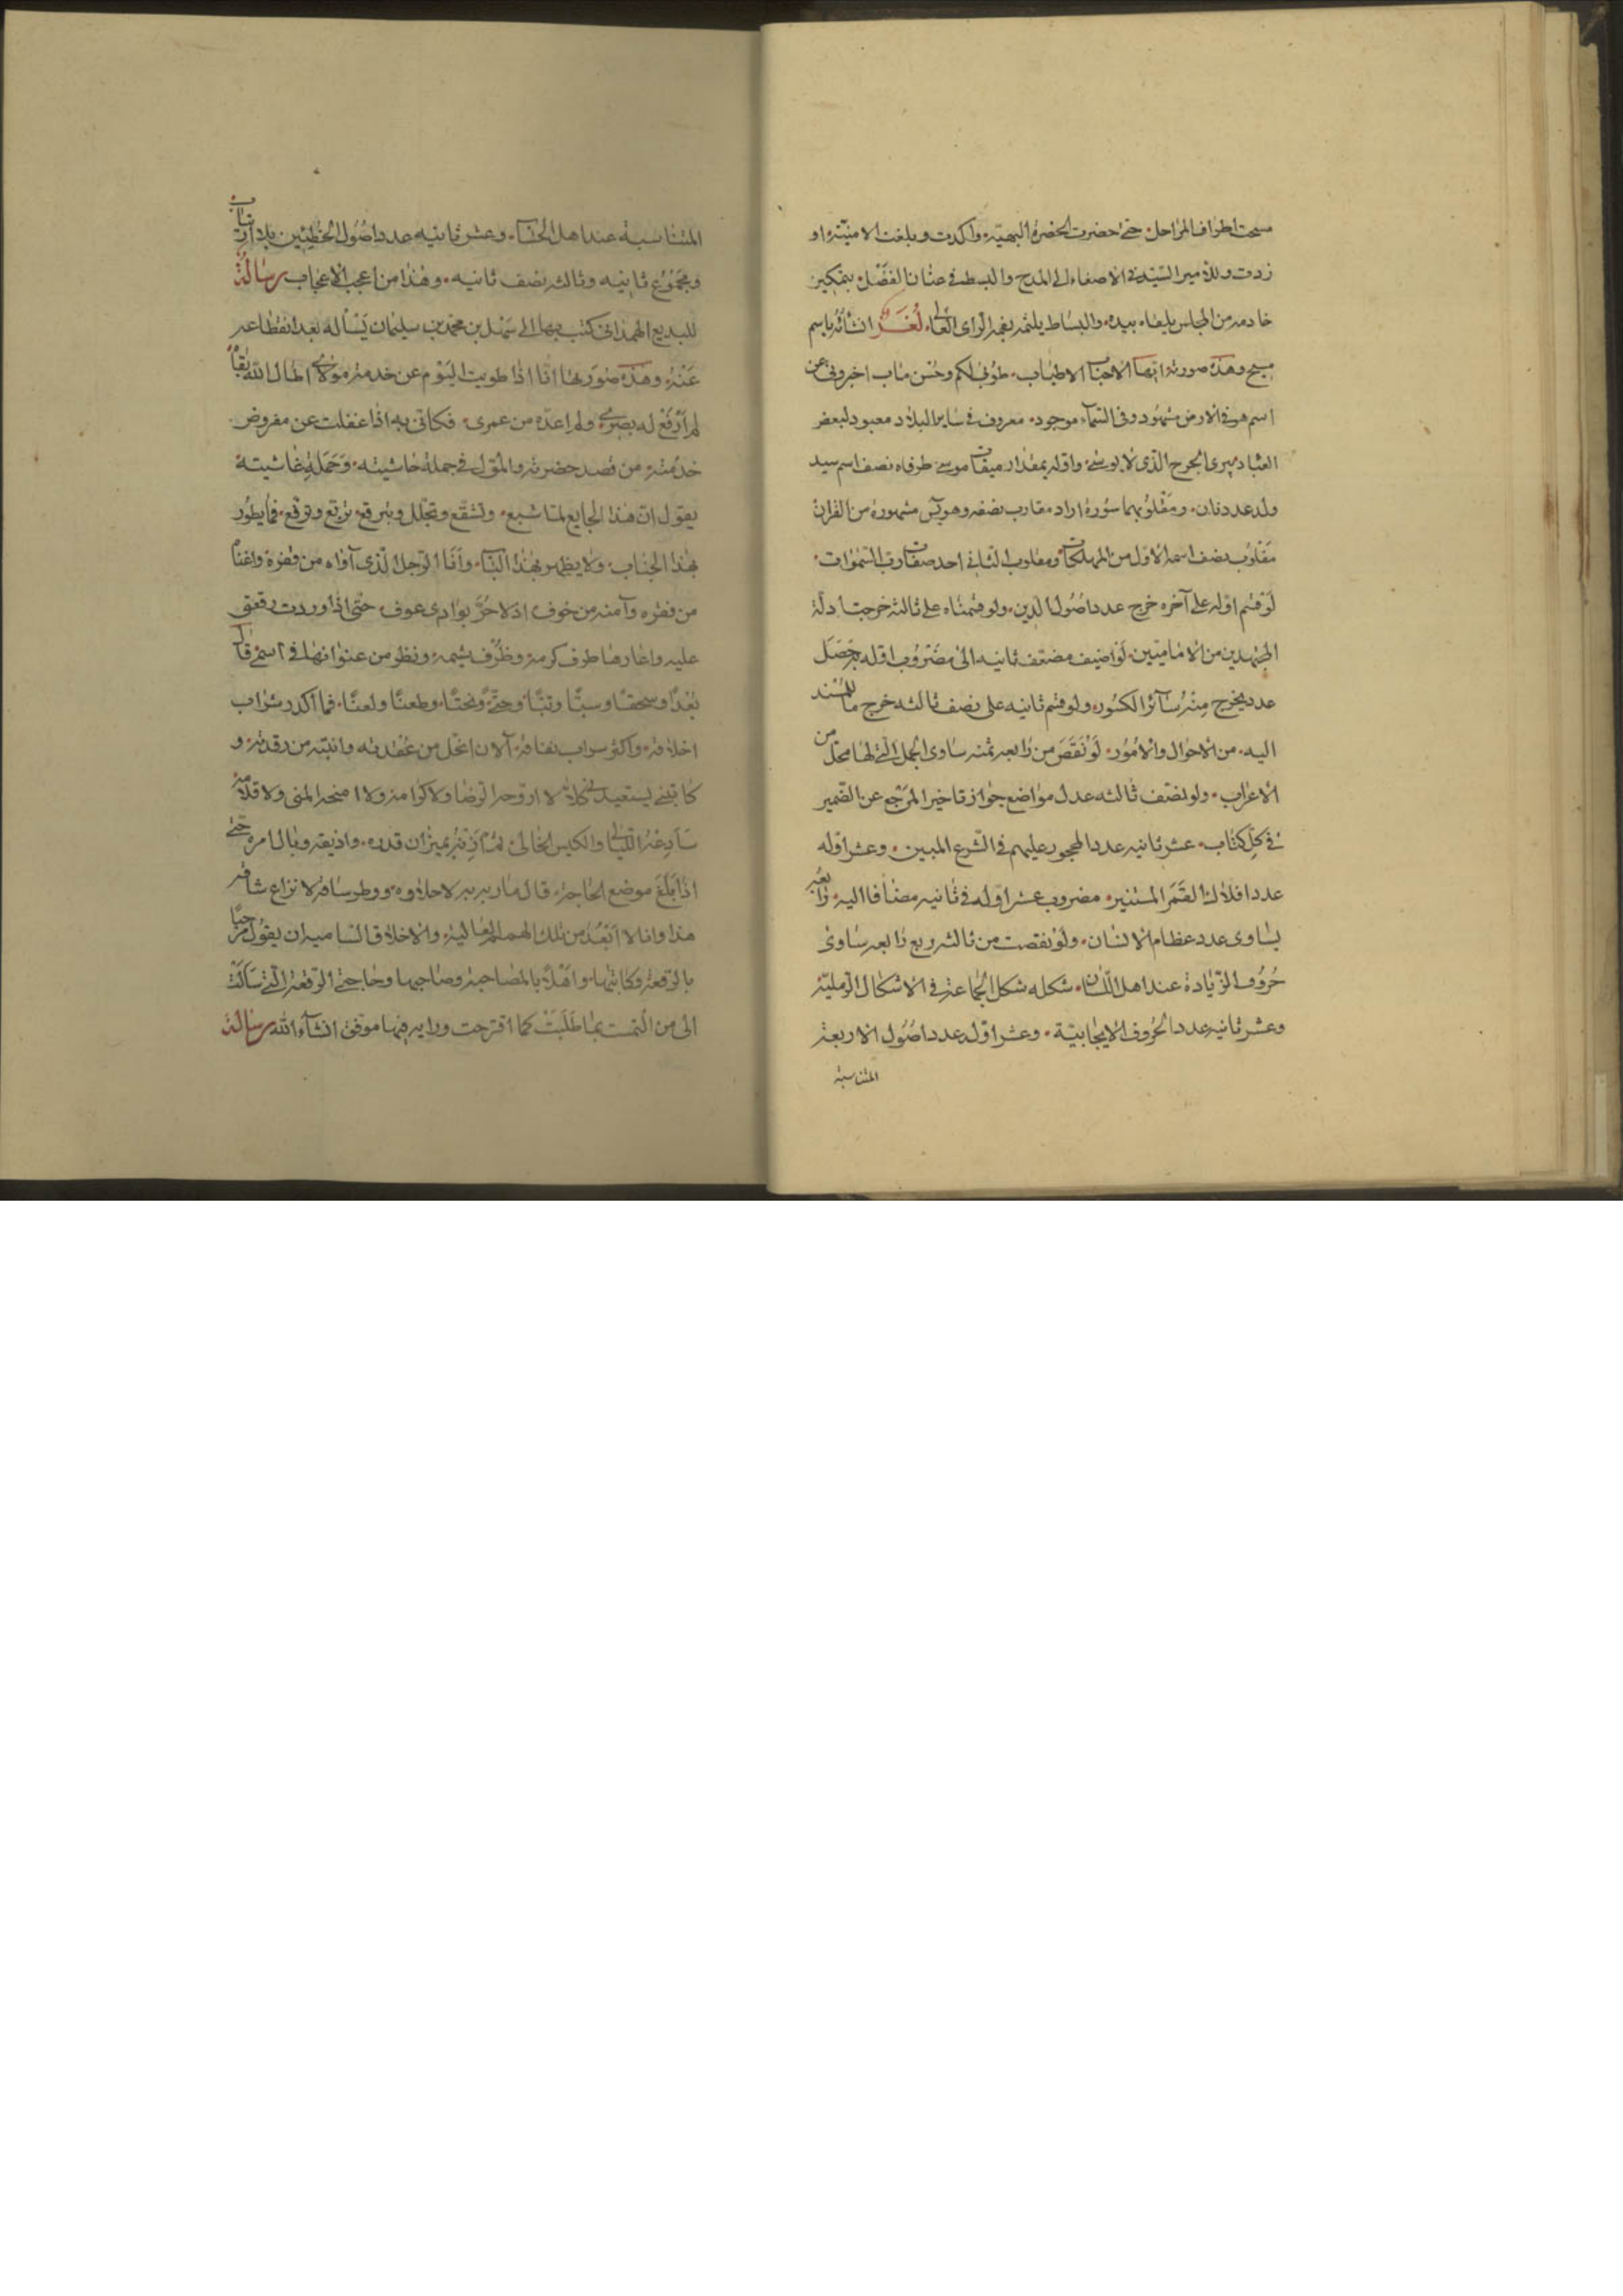 مسحت اطراف المراحل حتى حضرت الحضرة البهية واكدت وبلغت الامنية او
زدت وللامير السيد في الاصغاء الى المدح والبسط في عنان الفضل بتمكين
خادمه من المجلس يلقاه بيده والبساط يلثمه بفمه الراى العالى لغز انشأته باسم
مسيح وهذه صورته ايها الاحباب الاطياب طوبى لكم وحسن مآب اخبروني عن
اسم هو في الارض مشهود وفي السماء موجود معروف في ساير البلاد معبود لبعض
العباد يبرى الجرح الذى لا يوسى واوله بمقدار ميقات موسى طرفاه نصف اسم سيد
ولد عدنان ومقلوبهما سورة اراد مقارب نصفه وهو يس مشهورة من القران
مقلوب نصف اسمه الاول من المهلكات ومقلوب الثاني احد صفات رب السموات
لو قسم اوله على آخره خرج عدد اصول الدين ولو قسمناه على ثالثه خرجت ادلة
المجتهدين من الامامیین لو اضيف مضعف ثانيه الى مضروب اوله يحصل
عدد يخرج منه سائر الكسور ولو قسم ثانيه على نصف ثالثه خرج ما للمسند
اليه من الاحوال والامور لو نقص من رابعه ثمنه ساوى الجمل التي لها محل من
الاعراب ولو نصف ثالثه عدل مواضع جواز تاخير المرجع عن الضمير
في كل كتاب عشر ثانيه عدد المحجور عليهم في الشرع المبين وعشر اوله
عدد افلاك القمر المستنير مضروب عشر اوله في ثانيه مضافا اليه رابعه
يساوى عدد عظام الانسان ولو نقصت من ثالثه ربع رابعه ساوى
حروف الزيادة عند اهل اللسان شكله شكل الجماعة في الاشكال الرملية
وعشر ثانيه عدد الحروف الايجابية وعشر اوله عدد اصول الاربعة
المتناسبة
المتناسبة عند اهل الحساب وعشر ثانيه عدد اصول الخطئين بلا ارتياب
ومجموع ثانيه وثالثه نصف ثانيه وهذا من اعجب الاعجاب رسالة
للبديع الهمداني كتب بها الى سهل بن محمد بن سليمان يسأله بعد انقطاعه
عنه وهذه صورتها انا اذا طويت اليوم عن خدمة مولاى اطال الله بقاه
لم ارفع له بصرى ولم اعده من عمرى فكاني به اذا غفلت عن مفروض
خدمته من قصد حضرته والمثول في جملة حاشيته وحملة غاشيته
يقول ان هذا الجايع لما شبع وتشقع وتجلل وتبرقع تربع وترفع فما يطور
بهذا الجناب ولا يظهر بهذا الباب وانا الرجل الذى آواه من قفره واغناه
من فقره وآمنه من خوف اذ لا حر بوادى عوف حتى اذا وردت رقعتي
عليه واعارها طرف كرمه وظرف شيمه ونظر من عنوانها في اسمي قال
بعدا وسحقا وسبا وتبا وحتا ونحتا وطعنا ولعنا فما اكدر شراب
اخلاقه واكثر سراب نفاقه الآن انحل من عقدته وانتبه من رقدته و
كاتبني يستعيدني كلا لا ازوجه الرضا ولا كرامة ولا امنحه المنى ولا قلامة
سادعه الليالى والكاس الخالى اذنه بميزان قدره واذيقه وبال امره حتى
اذا بلغ موضع الحاجة قال مارب لا حلاوه ووطر سافه لا نزاع شاقه
هذا وانا لا ابعد من تلك الهمم العالية والاخلاق السامية ان يقول مرحبا
بالرقعة وكاتبها واهلا بالمصاحبة وصاحبها وحاجتي الرقعة التي سالت
الى من التمست بما طلبت كما اقترحت ورايه فيها موفق انشآء الله رسالة